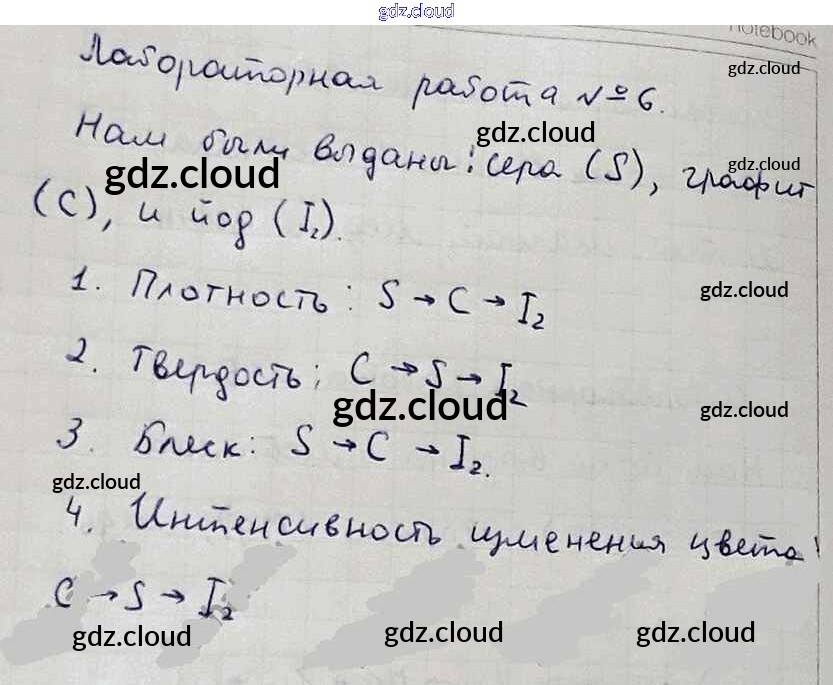 gdz.cloud
notebook
gdz.cloud
Лабораторная работа №6.
gdz.cloud
Нам были выданы: сера (S), графит
gdz.cloud
gdz.cloud
(C), и йод (I₂).
1. Плотность: S → C → I₂
gdz.cloud
2. Твердость: C → S → I₂
gdz.cloud
gdz.cloud
3. Блеск: S → C → I₂.
gdz.cloud
4. Интенсивность изменения цвета:
C → S → I₂
gdz.cloud
gdz.cloud
gdz.cloud